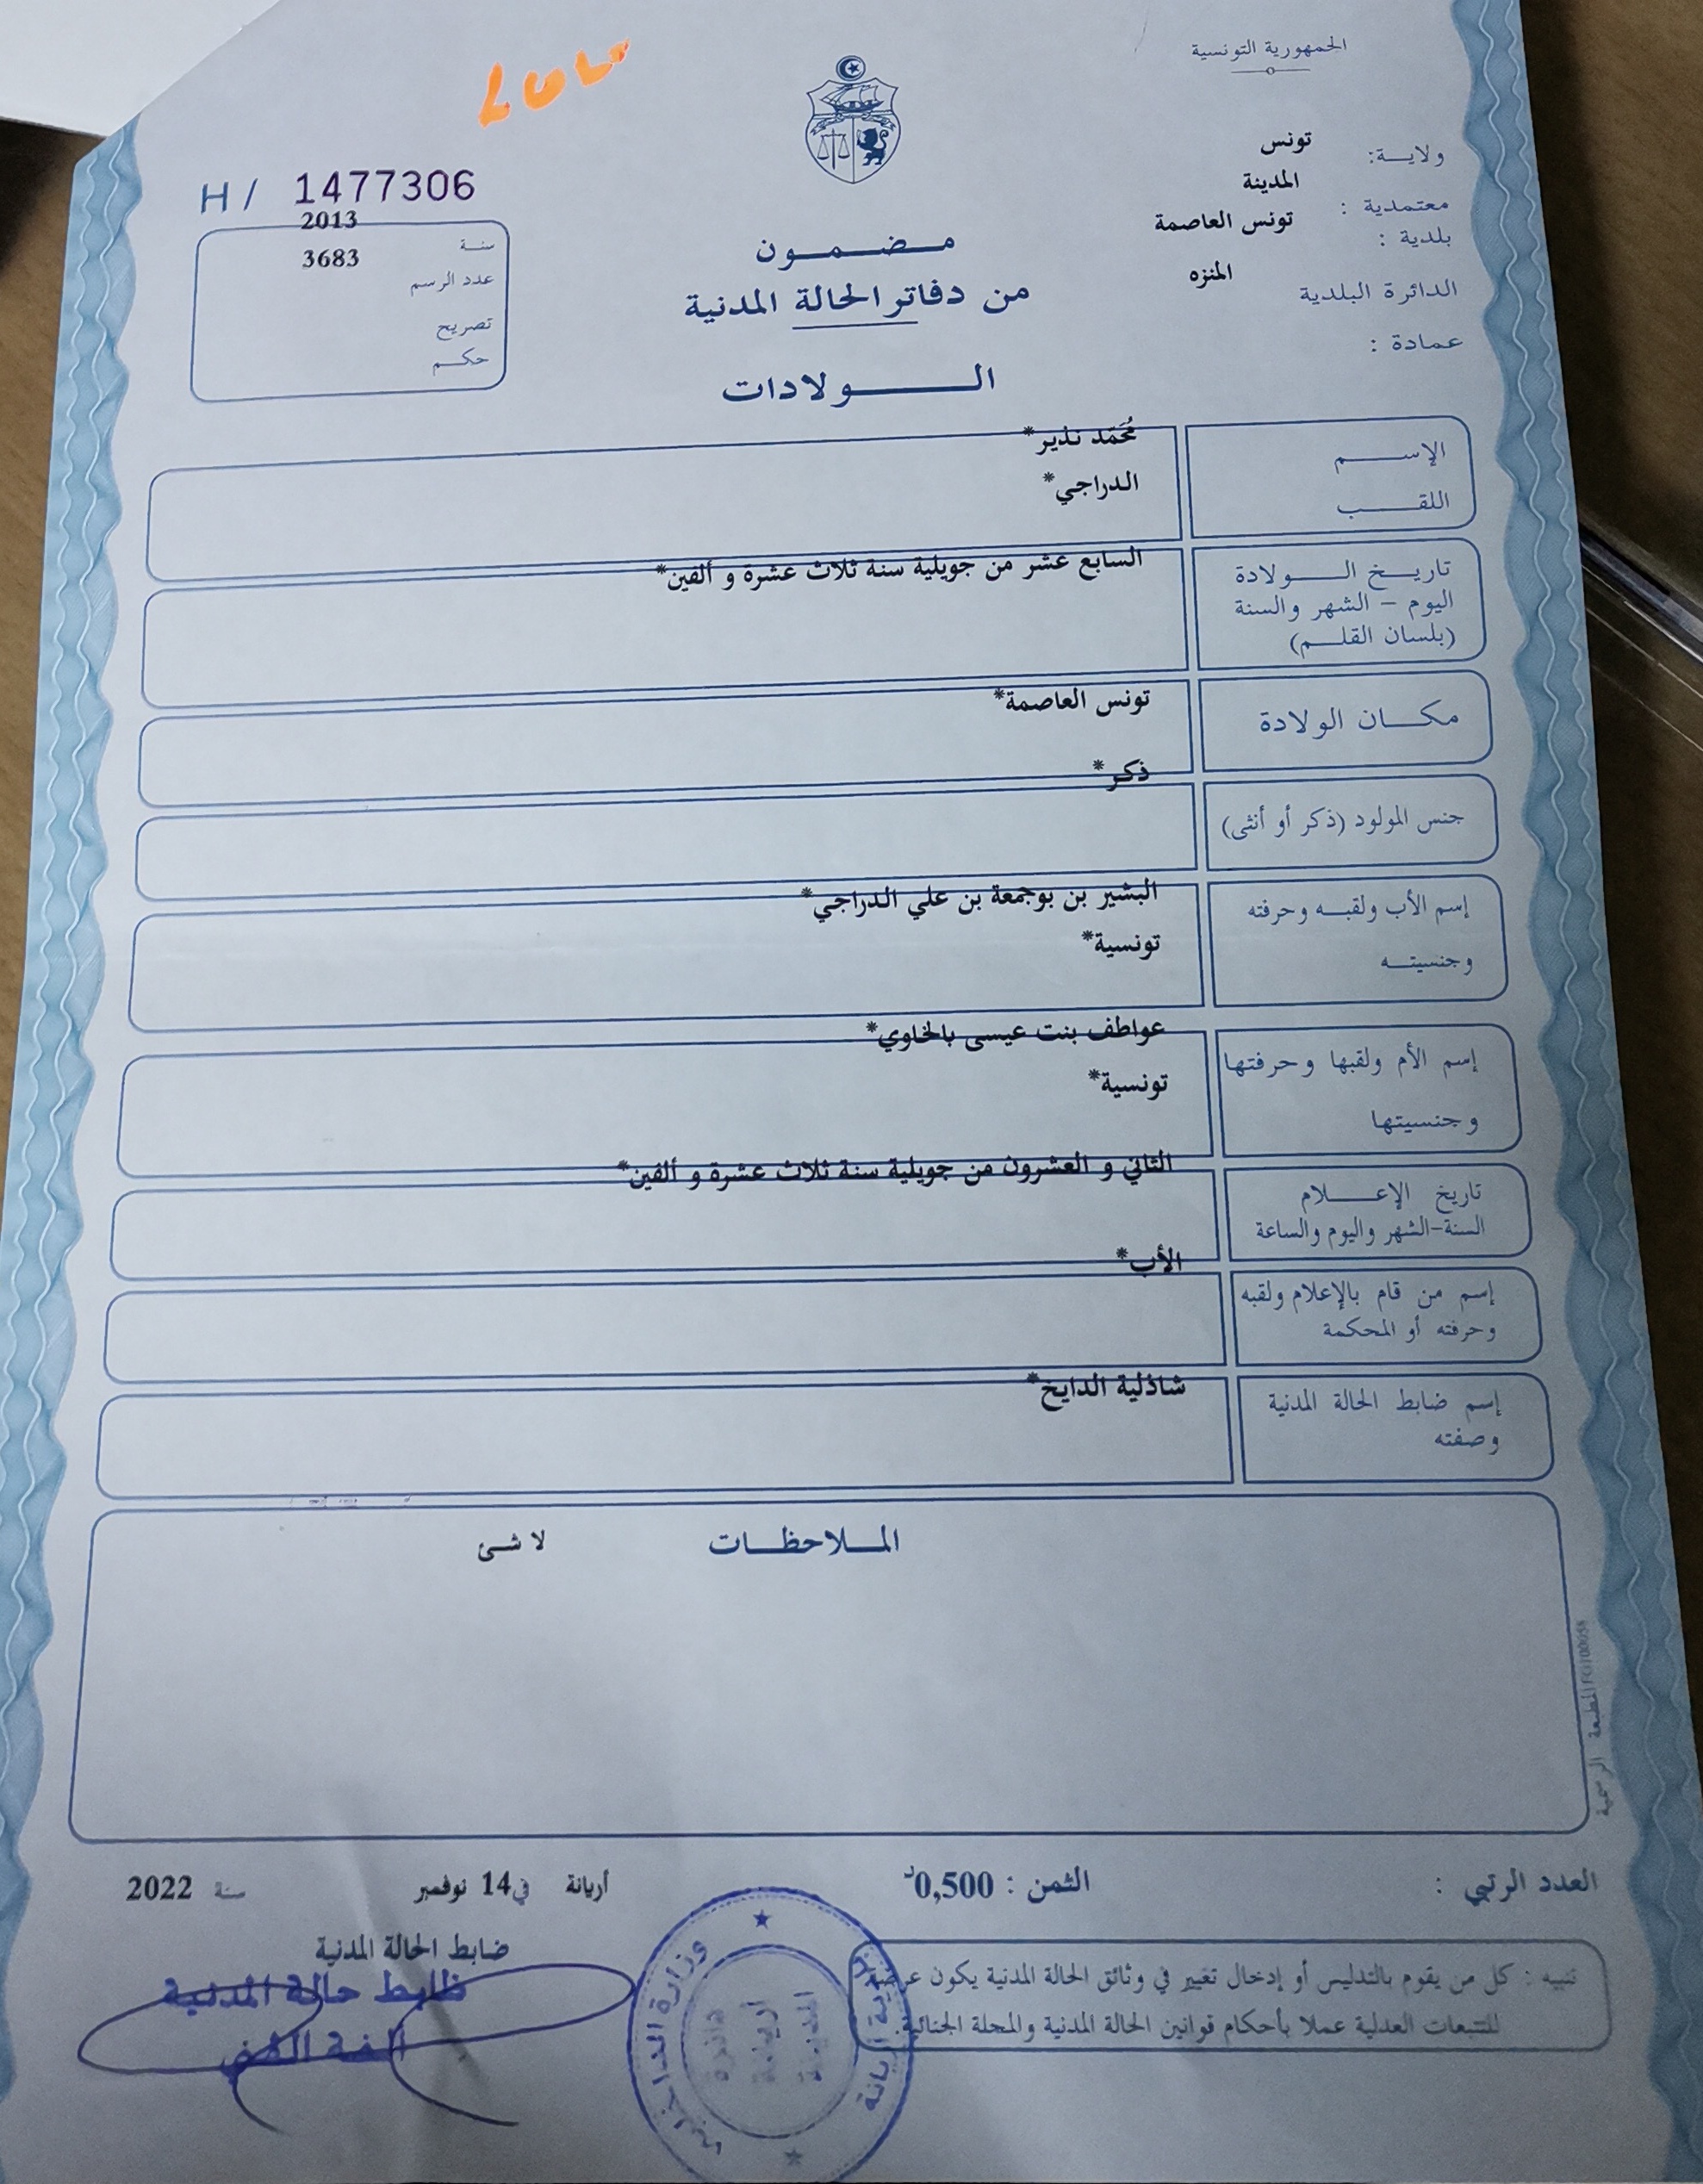 الجمهورية التونسية
ولايـــة: تونس
معتمدية : المدينة
بلدية : تونس العاصمة
الدائرة البلدية المنزه
عمادة :
H/ 1477306
سنـة 2013
عدد الرسم 3683
تصريح
حكـــم
مـــضـــمـــون
من دفاتر الحالة المدنية
الـــــــولادات
الإســــــم محمّد نذير*
اللقـــــب الدراجي*
تاريـــخ الـــــولادة السابع عشر من جويلية سنة ثلاث عشرة و ألفين*
اليوم - الشهر والسنة
(بلسان القلـــم)
مكـــان الولادة تونس العاصمة*
جنس المولود (ذكر أو أنثى) ذكر*
إسم الأب ولقبـــه وحرفته البشير بن بوجمعة بن علي الدراجي*
وجنسيتـــه تونسية*
إسم الأم ولقبها وحرفتها عواطف بنت عيسى بالخاوي*
وجنسيتها تونسية*
تاريخ الإعـــــلام الثاني و العشرون من جويلية سنة ثلاث عشرة و ألفين*
السنة-الشهر واليوم والساعة
إسم من قام بالإعلام ولقبه الأب*
وحرفته أو المحكمة
إسم ضابط الحالة المدنية شاذلية الدايخ*
وصفته
المـــلاحظـــات لا شئ
المطبعة الرسمية
العدد الرتبي : الثمن : 0,500د أريانة في 14 نوفمبر سنة 2022
ضابط الحالة المدنية
ظابط حالة المدنية
تنبيه : كل من يقوم بالتدليس أو إدخال تغيير في وثائق الحالة المدنية يكون عرضة
للتتبعات العدلية عملا بأحكام قوانين الحالة المدنية والمجلة الجنائية.
وزارة الداخلية
بلدية أريانة
دائرة
أريانة
المدينة